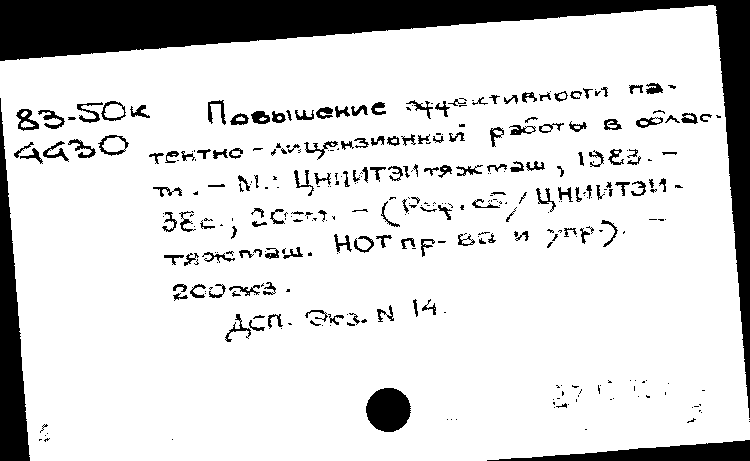 83-50к Повышение эффективности па-
4430 тентно-лицензионной работы в облас-
ти. – М.: ЦНИИТЭИтяжмаш, 1983. –
38с.; 20см. – (Реф. сб./ ЦНИИТЭИ-
тяжмаш. НОТ пр-ва и упр.). –
200экз.
ДСП. Экз. N 14.